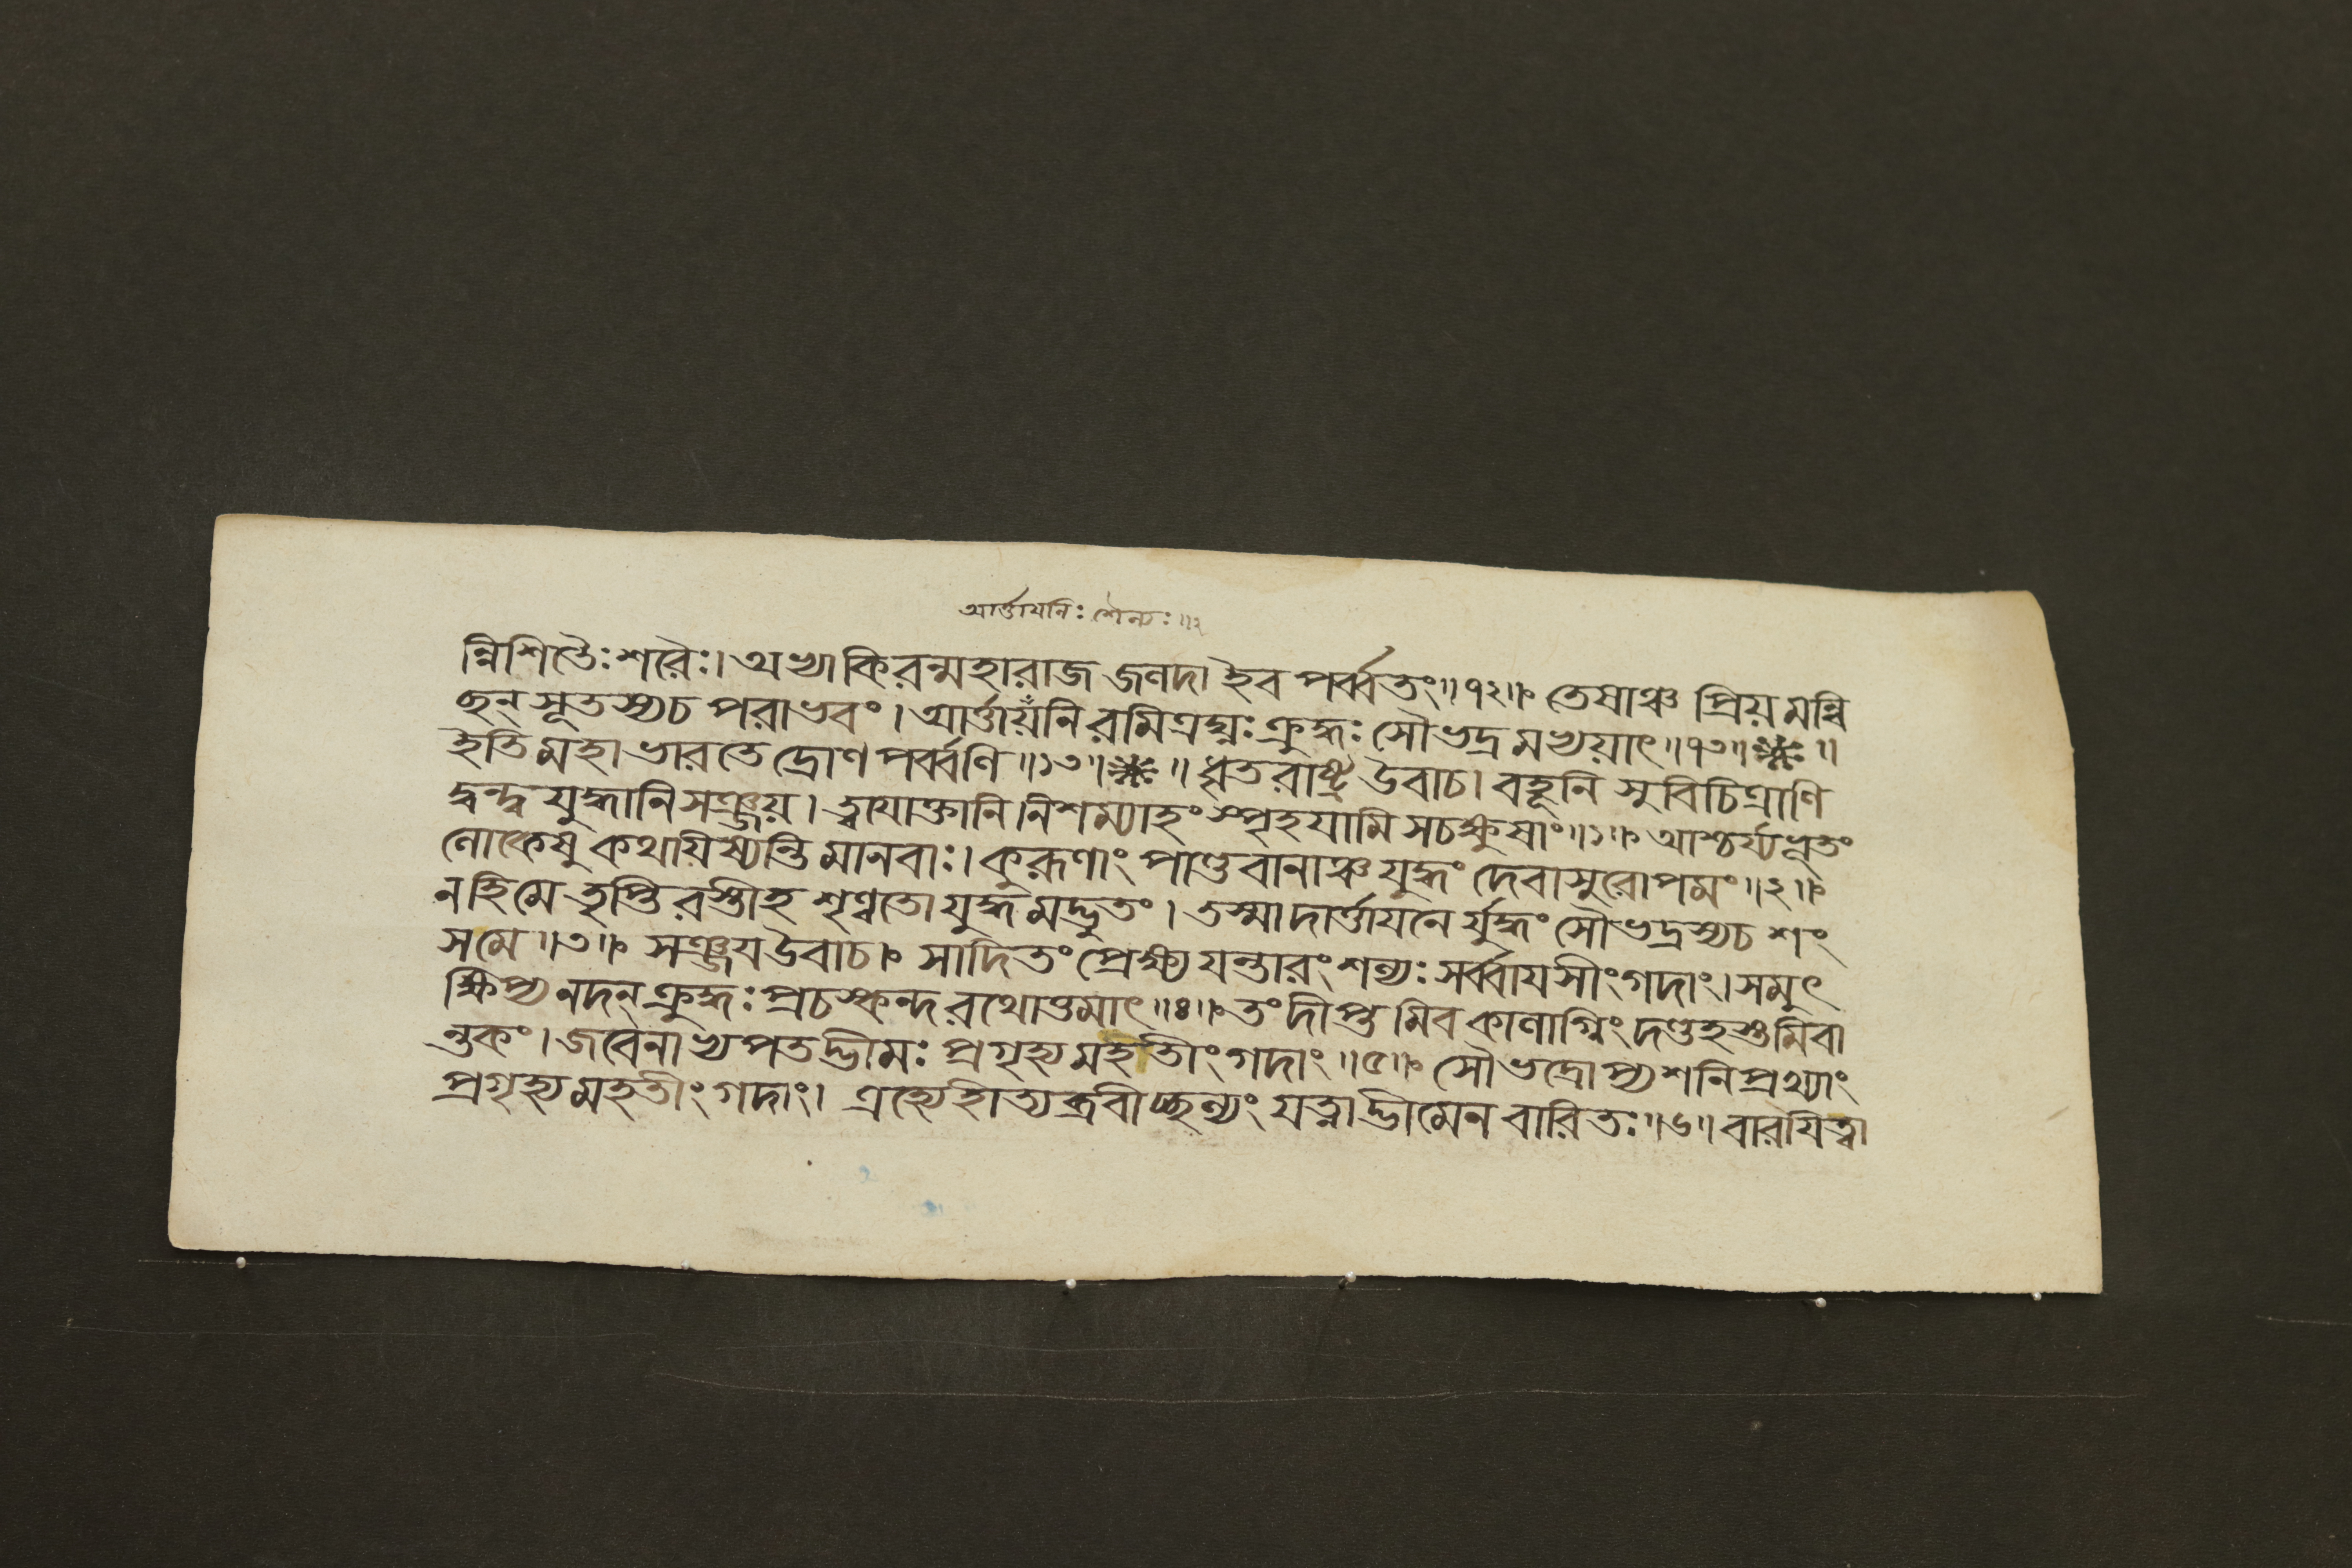 আর্ত্তায়নিঃ শৈল্যঃ॥২
ন্নিশিতৈঃ শরৈঃ। অভ্যাকিরন্মহারাজ জলদা ইব পর্ব্বতং॥৭২॥ তেষাঞ্চ প্রিয়মন্বি
ছন্ সূতস্য চ পরাভবং। আর্ত্তায়নিরমিত্রঘ্নঃ ক্রুদ্ধঃ সৌভদ্রমভ্যয়াৎ॥৭৩॥ ❋॥
ইতি মহাভারতে দ্রোণপর্ব্বণি॥১৩॥❋॥ ধৃতরাষ্ট্র উবাচ। বহূনি সুবিচিত্রাণি
দ্বন্দ্বযুদ্ধানি সঞ্জয়। ত্বয়োক্তানি নিশম্যাহং স্পৃহয়ামি সচক্ষুষাং॥১॥ আশ্চর্য্যভূতং
লোকেষু কথয়িষ্যন্তি মানবাঃ। কুরূণাং পাণ্ডবানাঞ্চ যুদ্ধং দেবাসুরোপমং॥২॥
ন হি মে তৃপ্তিরস্তীহ শৃণ্বতো যুদ্ধমদ্ভুতং। তস্মাদার্ত্তায়নের্যুদ্ধং সৌভদ্রস্য চ শং
স মে॥৩॥ সঞ্জয় উবাচ। সাদিতং প্রেক্ষ্য যন্তারং শল্যঃ সর্ব্বায়সীং গদাং। সমুৎ
ক্ষিপ্য নদন্ ক্রুদ্ধঃ প্রচস্কন্দ রথোত্তমাৎ॥৪॥ তং দীপ্তমিব কালাগ্নিং দণ্ডহস্তমিবা
ন্তকং। জবেনাভ্যপতদ্ভীমঃ প্রগৃহ্য মহতীং গদাং॥৫॥ সৌভদ্রোপ্যশনিপ্রখ্যাং
প্রগৃহ্য মহতীং গদাং। এহ্যেহীত্যব্রবীচ্ছল্যং যত্নাদ্ভীমেন বারিতঃ॥৬॥ বারয়িত্বা